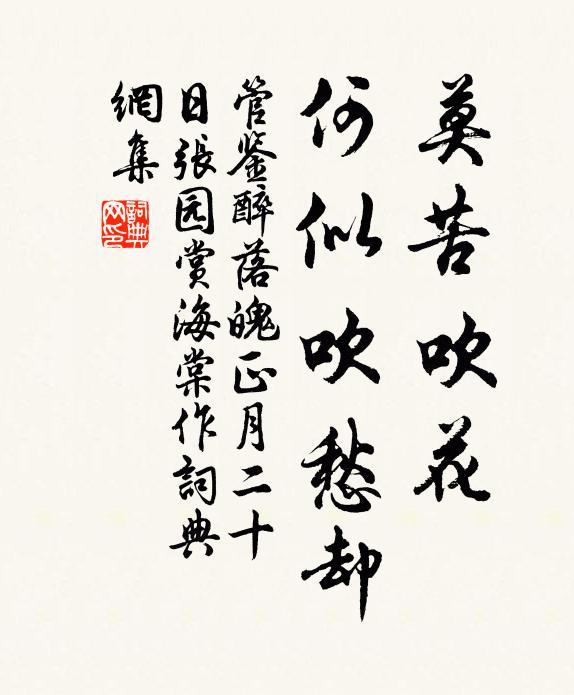 莫苦吹花
何似吹愁却
管鉴醉落魄正月二十
日張园赏海棠作詞典
網集
詞典
网印